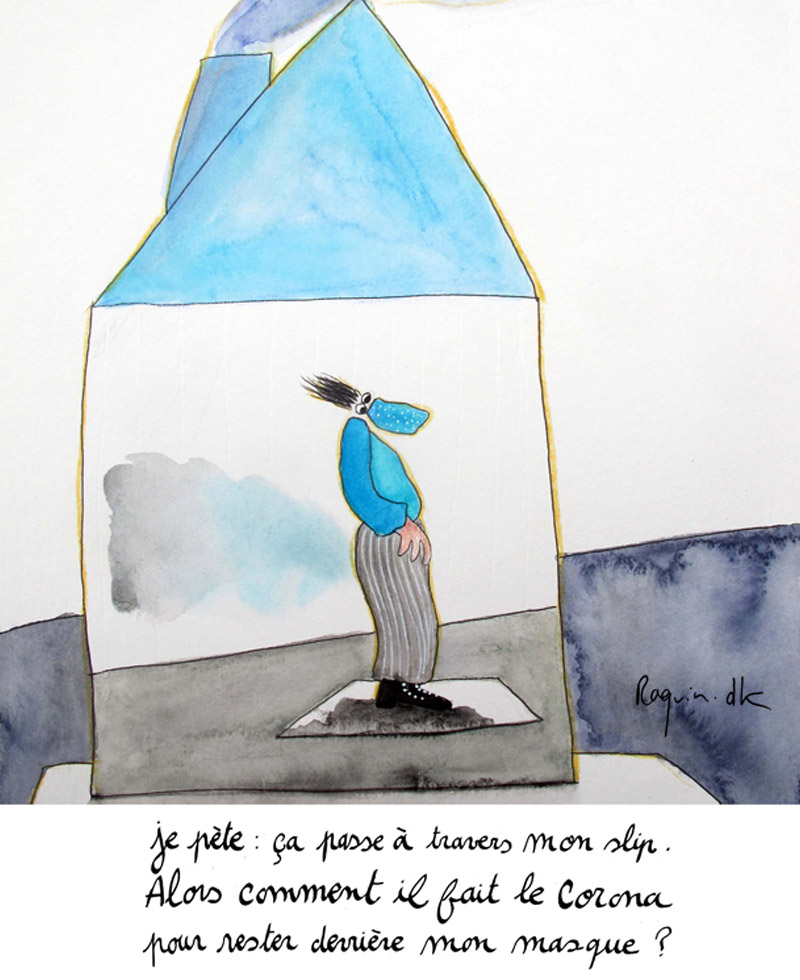 Raquin.dk
je pète : ça passe à travers mon slip.
Alors comment il fait le Corona
pour rester derrière mon masque ?